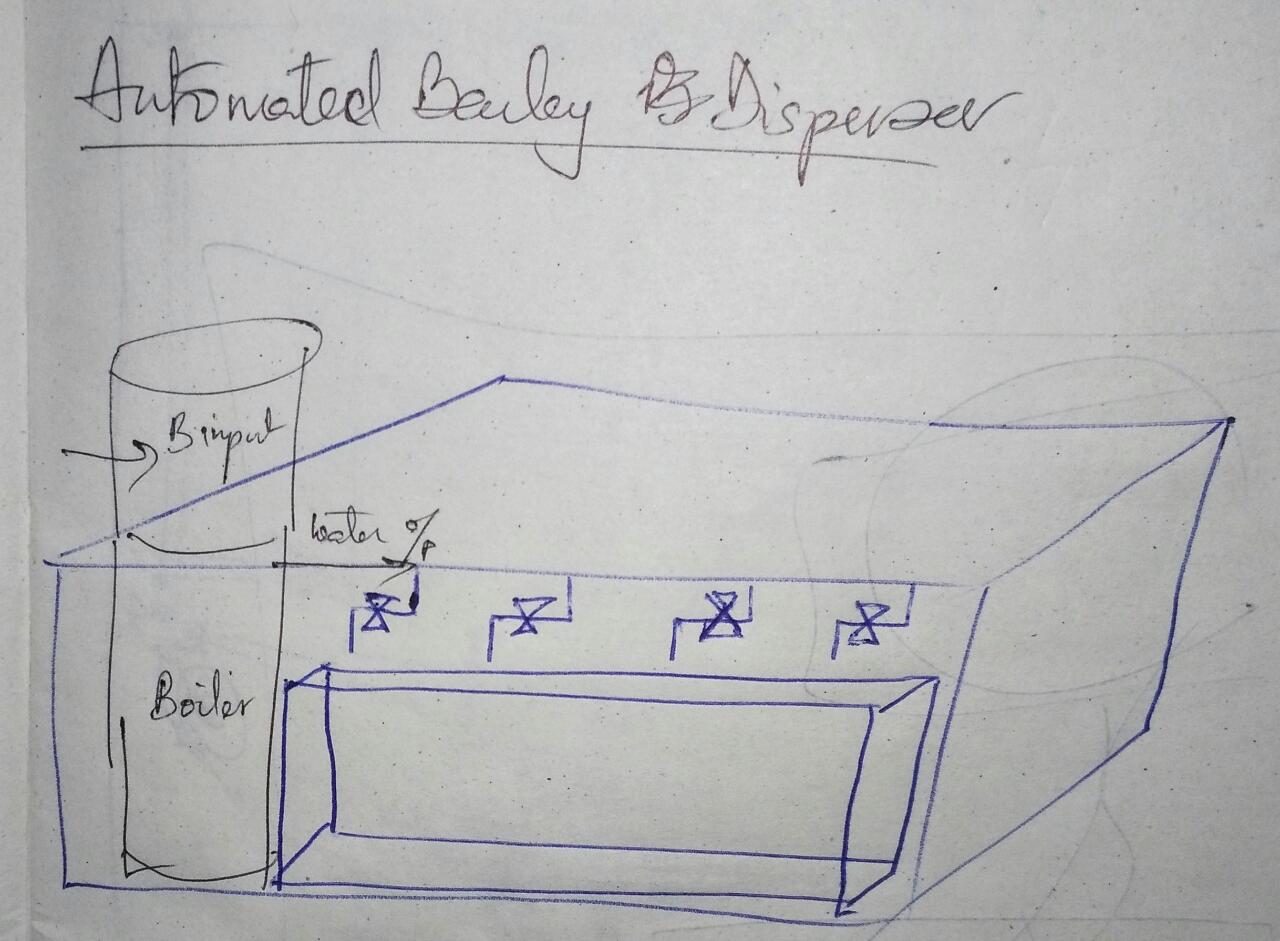 Automated Barley Disperser
B input
water o/p
Boiler